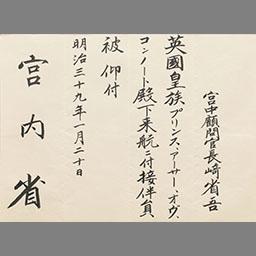 宮中顧問官長﨑省吾
英國皇族プリンス、アーサー、オヴ、
コンノート殿下来航ニ付接伴員
被仰付
明治三十九年一月二十日
宮内省